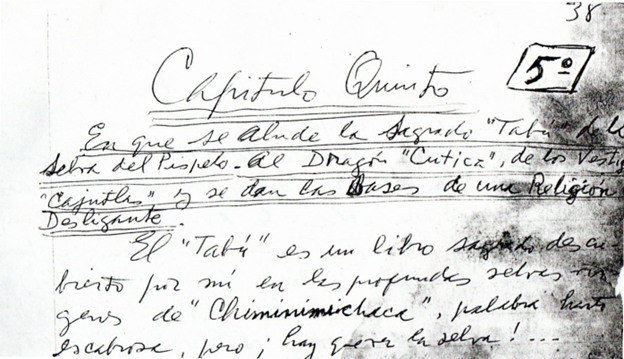 38
5º
Capitulo Quinto
En que se alude la sagrado "Tabú" de la
selva del Pispelo - al Dragón "Cutica", de los Vestig
"Cajutlis" y se dan las Bases de una Religión
Desligante.
El "Tabú" es un libro sagrado descu
bierto por mí en las profundas selvas vir
genes de "Chiminimichaca", palabra harto
escabrosa, pero ¡ hay que ver la selva ! ...